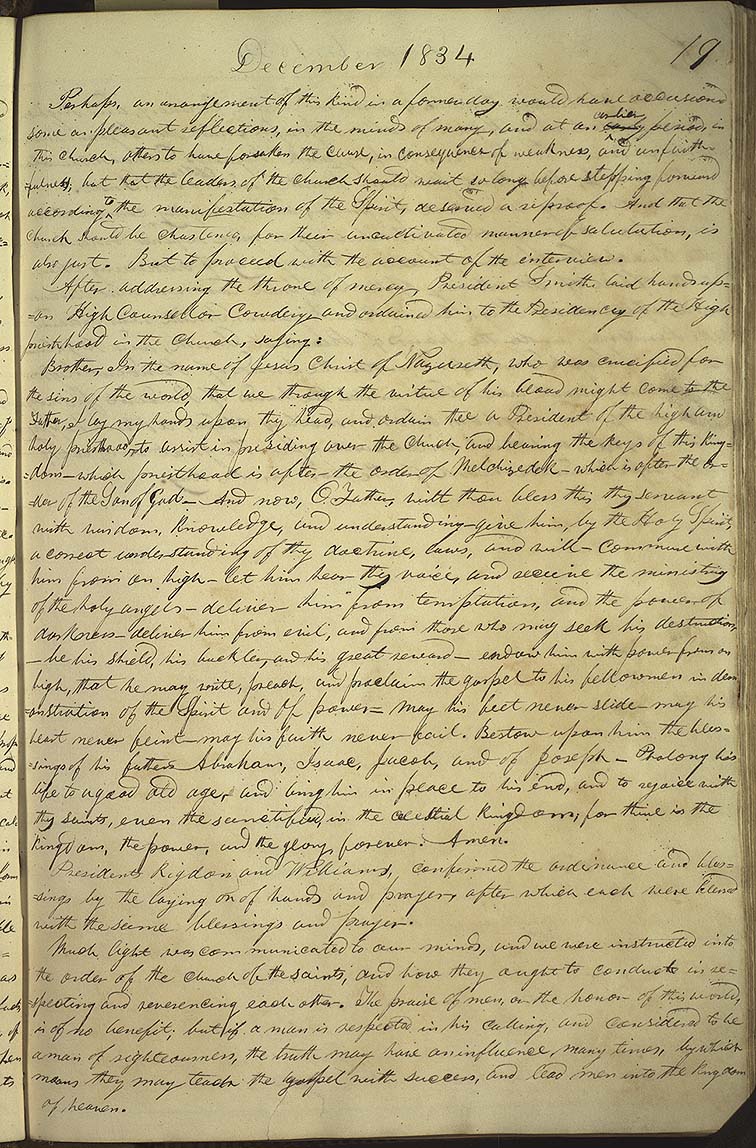 December 1834
19
Perhaps, an arrangement of this kind in a former day would have occasioned
some unpleasant reflections, in the minds of many, and at an earlier period, in
this church, others to have forsaken the cause, in consequence of weakness, and unfaith-
-fulness; but that the leaders of the church should wait so long before stepping forward
according to the manifestation of the Spirit, deserved a reproof. And that the
church should be chastened for their uncultivated manner of salutation, is
also just. But to proceed with the account of the interview.
After addressing the throne of mercy, President Smith laid hands up=
=on High Counsellor Cowdery and ordained him to the Presidency of the High
priesthood in the Church, saying:
Brother, In the name of Jesus Christ of Nazareth, who was crucified for
the sins of the world, that we through the virtue of his blood might come to the
Father, I lay my hands upon thy head, and ordain thee a President of the high and
holy priesthood, to assist in presiding over the Church, and bearing the keys of this King-
=dom— which priesthood is after the order of Melchizedek— which is after the or-
=der of the Son of God— And now, O Father, wilt thou bless this thy servant
with wisdom, knowledge, and understanding— give him, by the Holy Spirit,
a correct understanding of thy doctrine, laws, and will— Commune with
him from on high— let him hear thy voice, and receive the ministring
of the holy angels— deliver him from temptation, and the power of
darkness— deliver him from evil, and from those who may seek his destruction,
—be his shield, his buckler, and his great reward— endow him with power from on
high, that he may write, preach, and proclaim the gospel to his fellowmen in dem
=onstration of the Spirit and of power— may his feet never slide— may his
heart never feint— may his faith never fail. Bestow upon him the bles-
=sings of his fathers Abraham, Isaac, Jacob, and of Joseph— Prolong his
life to a good old age, and bring him in peace to his end, and to rejoice with
thy saints, even the sanctified, in the celestial kingdom; for thine is the
kingdom, the power, and the glory, forever. Amen.
Presidents Rigdon and Williams, confirmed the ordinance and bles-
=sings by the laying on of hands and prayer, after which each were blessed
with the same blessings and prayer.
Much light was communicated to our minds, and we were instructed into
the order of the Church of the saints, and how they ought to conduct in re-
=specting and reverencing each other. The praise of men, or the honor of this world,
is of no benefit; but if a man is respected in his calling, and considered to be
a man of righteousness, the truth may have an influence, many times, by which
means they may teach the gospel with success, and lead men into the kingdom
of heaven.